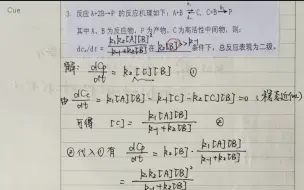 Cue
3. 反应 A+2B→P 的反应机理如下: A+B ⇌ C, C+B → P
其中 A、B为反应物, P为产物, C为高活性中间物, 则:
dcₚ/dt = k₁k₂[A][B]²/(k₋₁+k₂[B]) 在 条件下, 总反应表现为二级。
解: dCp/dt = k₂[C][B] ①
由 dCc/dt = k₁[A][B] - k₋₁[C] - k₂[C][B] = 0 (稳态近似)
可得 [C] = k₁[A][B]/(k₋₁+k₂[B]) ②
②代入①有 dCp/dt = k₂[B]·k₁[A][B]/(k₋₁+k₂[B])
= k₁k₂[A][B]²/(k₋₁+k₂[B])